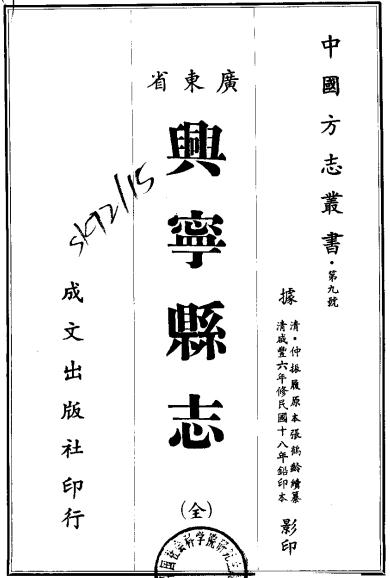 中國方志叢書・第九號
據
清・仲振履原本張鶴齡續纂
清咸豐六年修民國十八年鉛印本
影印
廣東省
興寧縣志
(全)
成文出版社印行